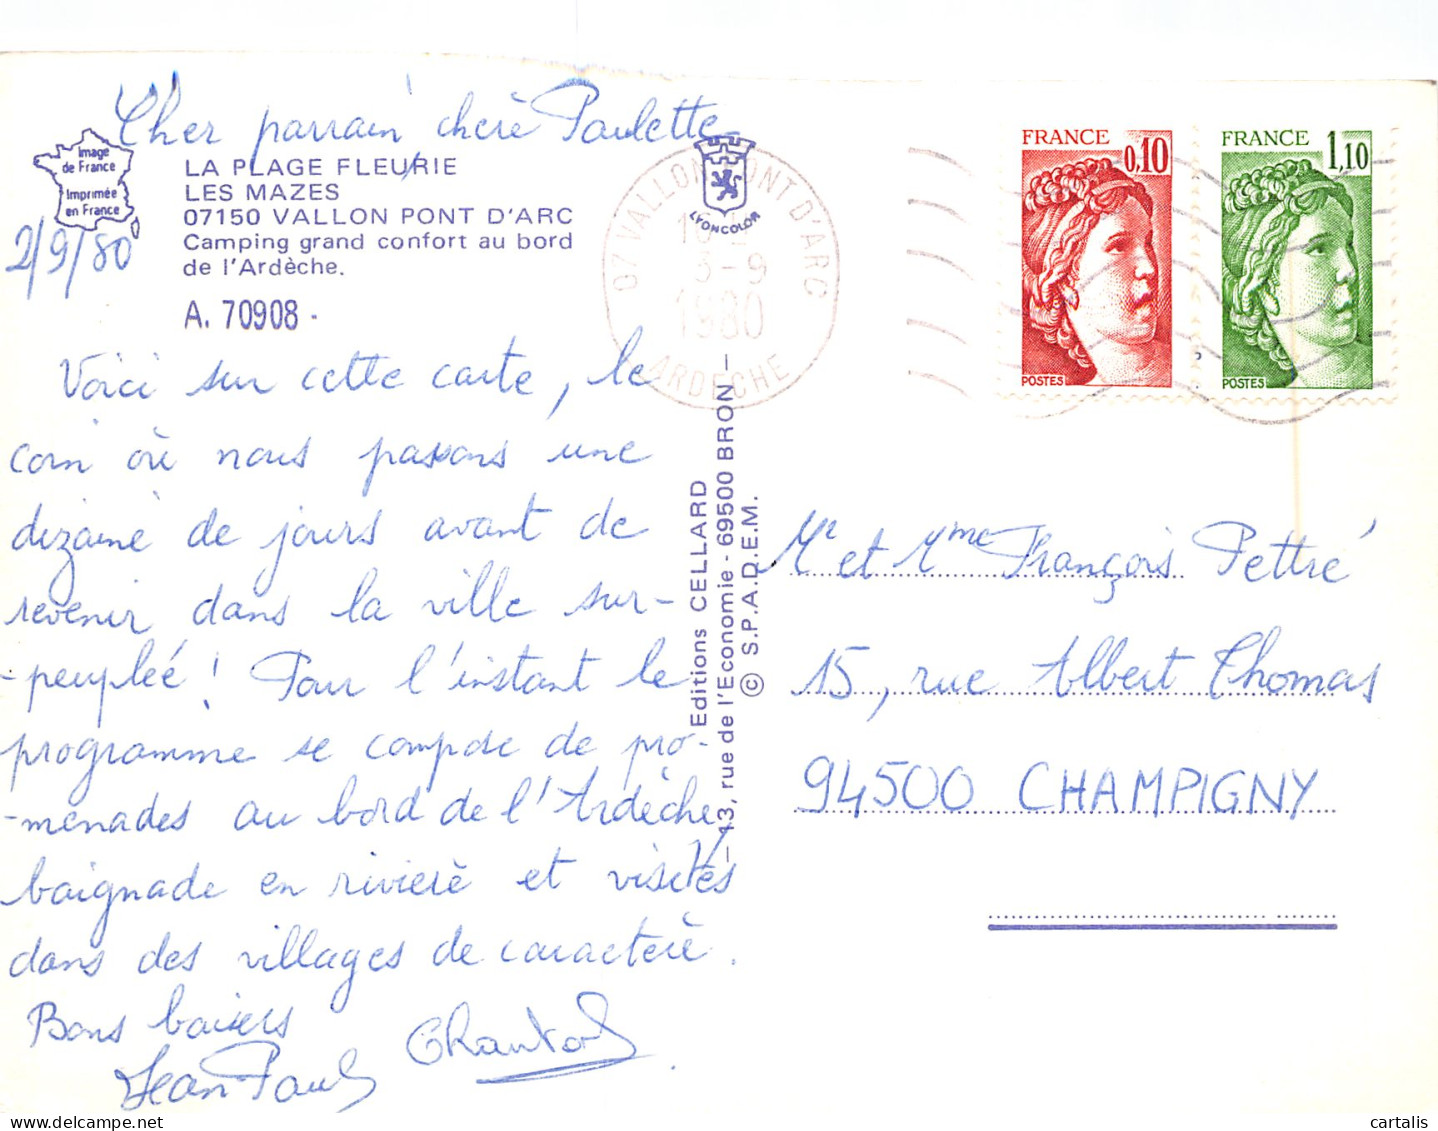 Cher parrain chère Paulette
Image
de France
Imprimée
en France
LA PLAGE FLEURIE
LES MAZES
07150 VALLON PONT D'ARC
Camping grand confort au bord
de l'Ardèche.
A. 70908 -
2/9/80
Voici sur cette carte, le
coin où nous passons une
dizaine de jours avant de
revenir dans la ville sur-
-peuplée ! Pour l'instant le
programme se compose de pro-
-menades au bord de l'Ardèche,
baignade en rivière et visites
dans des villages de caractère.
Bons baisers
Jean-Paul Chantal
LYONCOLOR
07 VALLON PONT D'ARC
3-9
1980
ARDECHE
FRANCE
0,10
POSTES
FRANCE
1,10
POSTES
Editions CELLARD
13, rue de l'Economie - 69500 BRON
© S.P.A.D.E.M.
Mr et Mme François Pettré
15, rue Albert Thomas
94500 CHAMPIGNY
cartalis